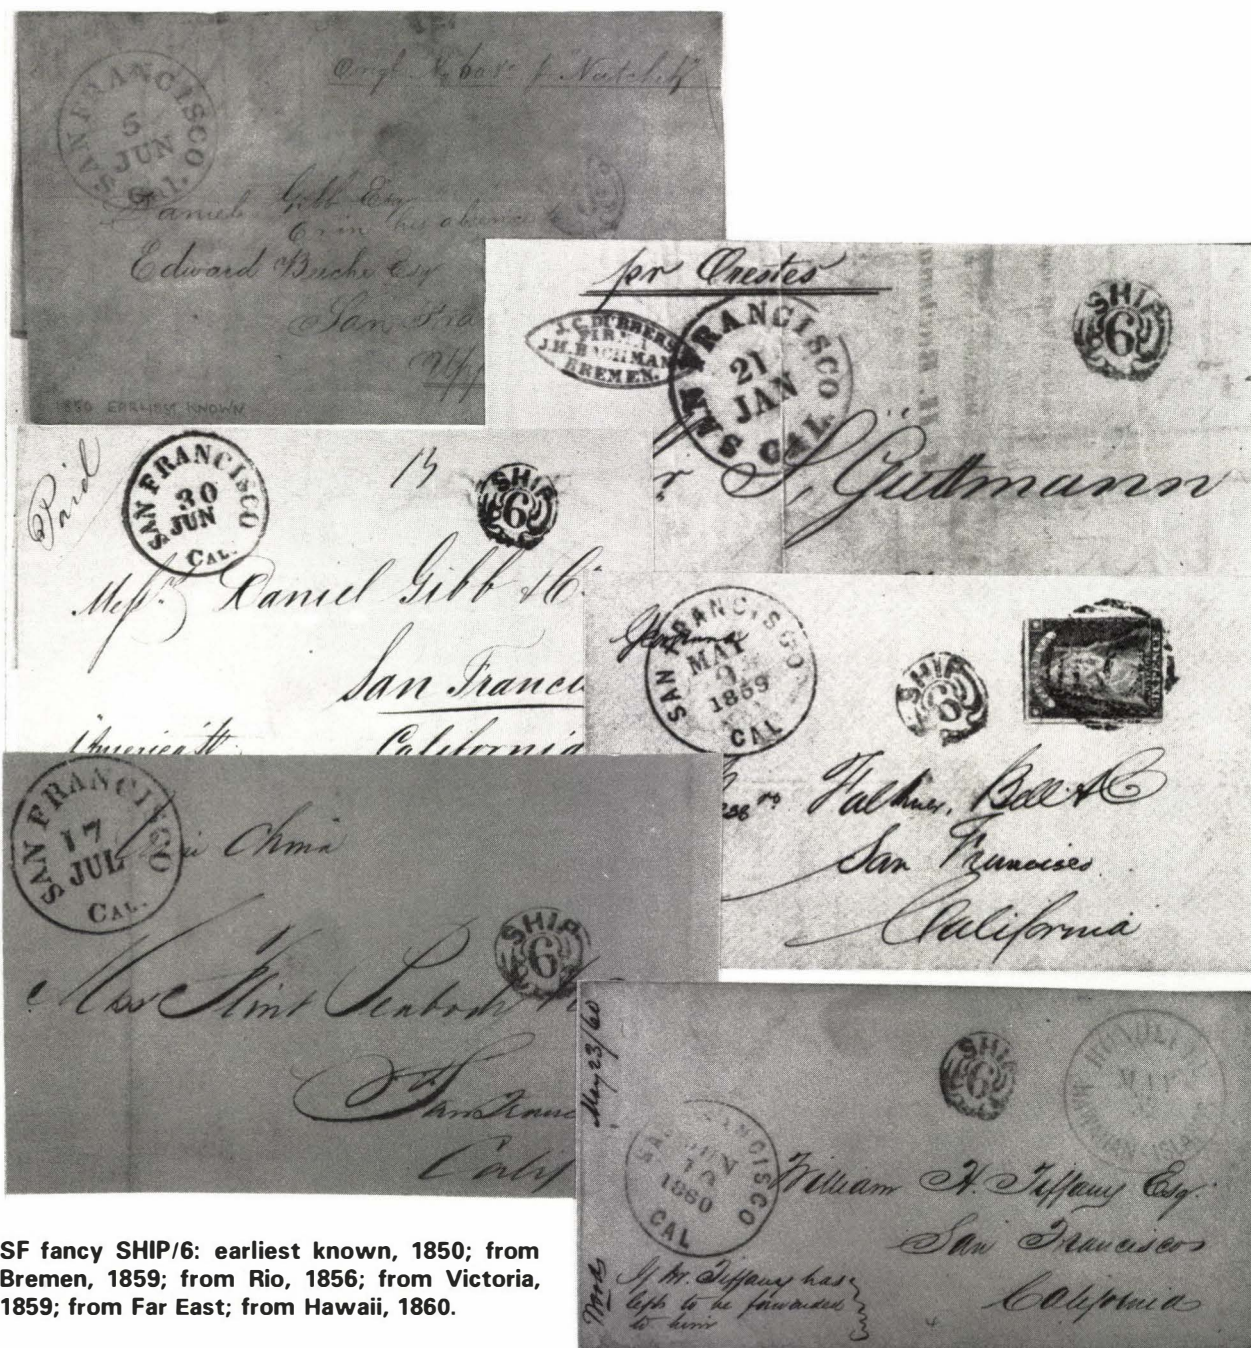 SAN FRANCISCO
5
JUN
Cal.
Daniel Gibb Esq
or in his absence to
Edward Esq
San Fra
1850 EARLIEST KNOWN
pr Orestes
J.C. DUBBERS
FIRMA
J.H. BACHMAN
BREMEN.
SAN FRANCISCO
21
JAN
CAL.
SHIP
6
S. Guttmann
Paid
SAN FRANCISCO
30
JUN
CAL.
SHIP
6
Messrs Daniel Gibb & Co.
San Franci
California
SAN FRANCISCO
MAY
1859
CAL
SHIP
6
Falkner, Bell & Co
San Francisco
California
SAN FRANCISCO
17
JUL
CAL.
China
SHIP
6
Flint Peabody
San Franc
Calif
May 23/60
SHIP
6
HONOLULU
HAWAIIAN ISLANDS
SAN FRANCISCO
JUN
10
1860
CAL
William H. Tiffany Esq.
San Francisco
California
If Mr. Tiffany has
left to be forwarded
to him
SF fancy SHIP/6: earliest known, 1850; from
Bremen, 1859; from Rio, 1856; from Victoria,
1859; from Far East; from Hawaii, 1860.